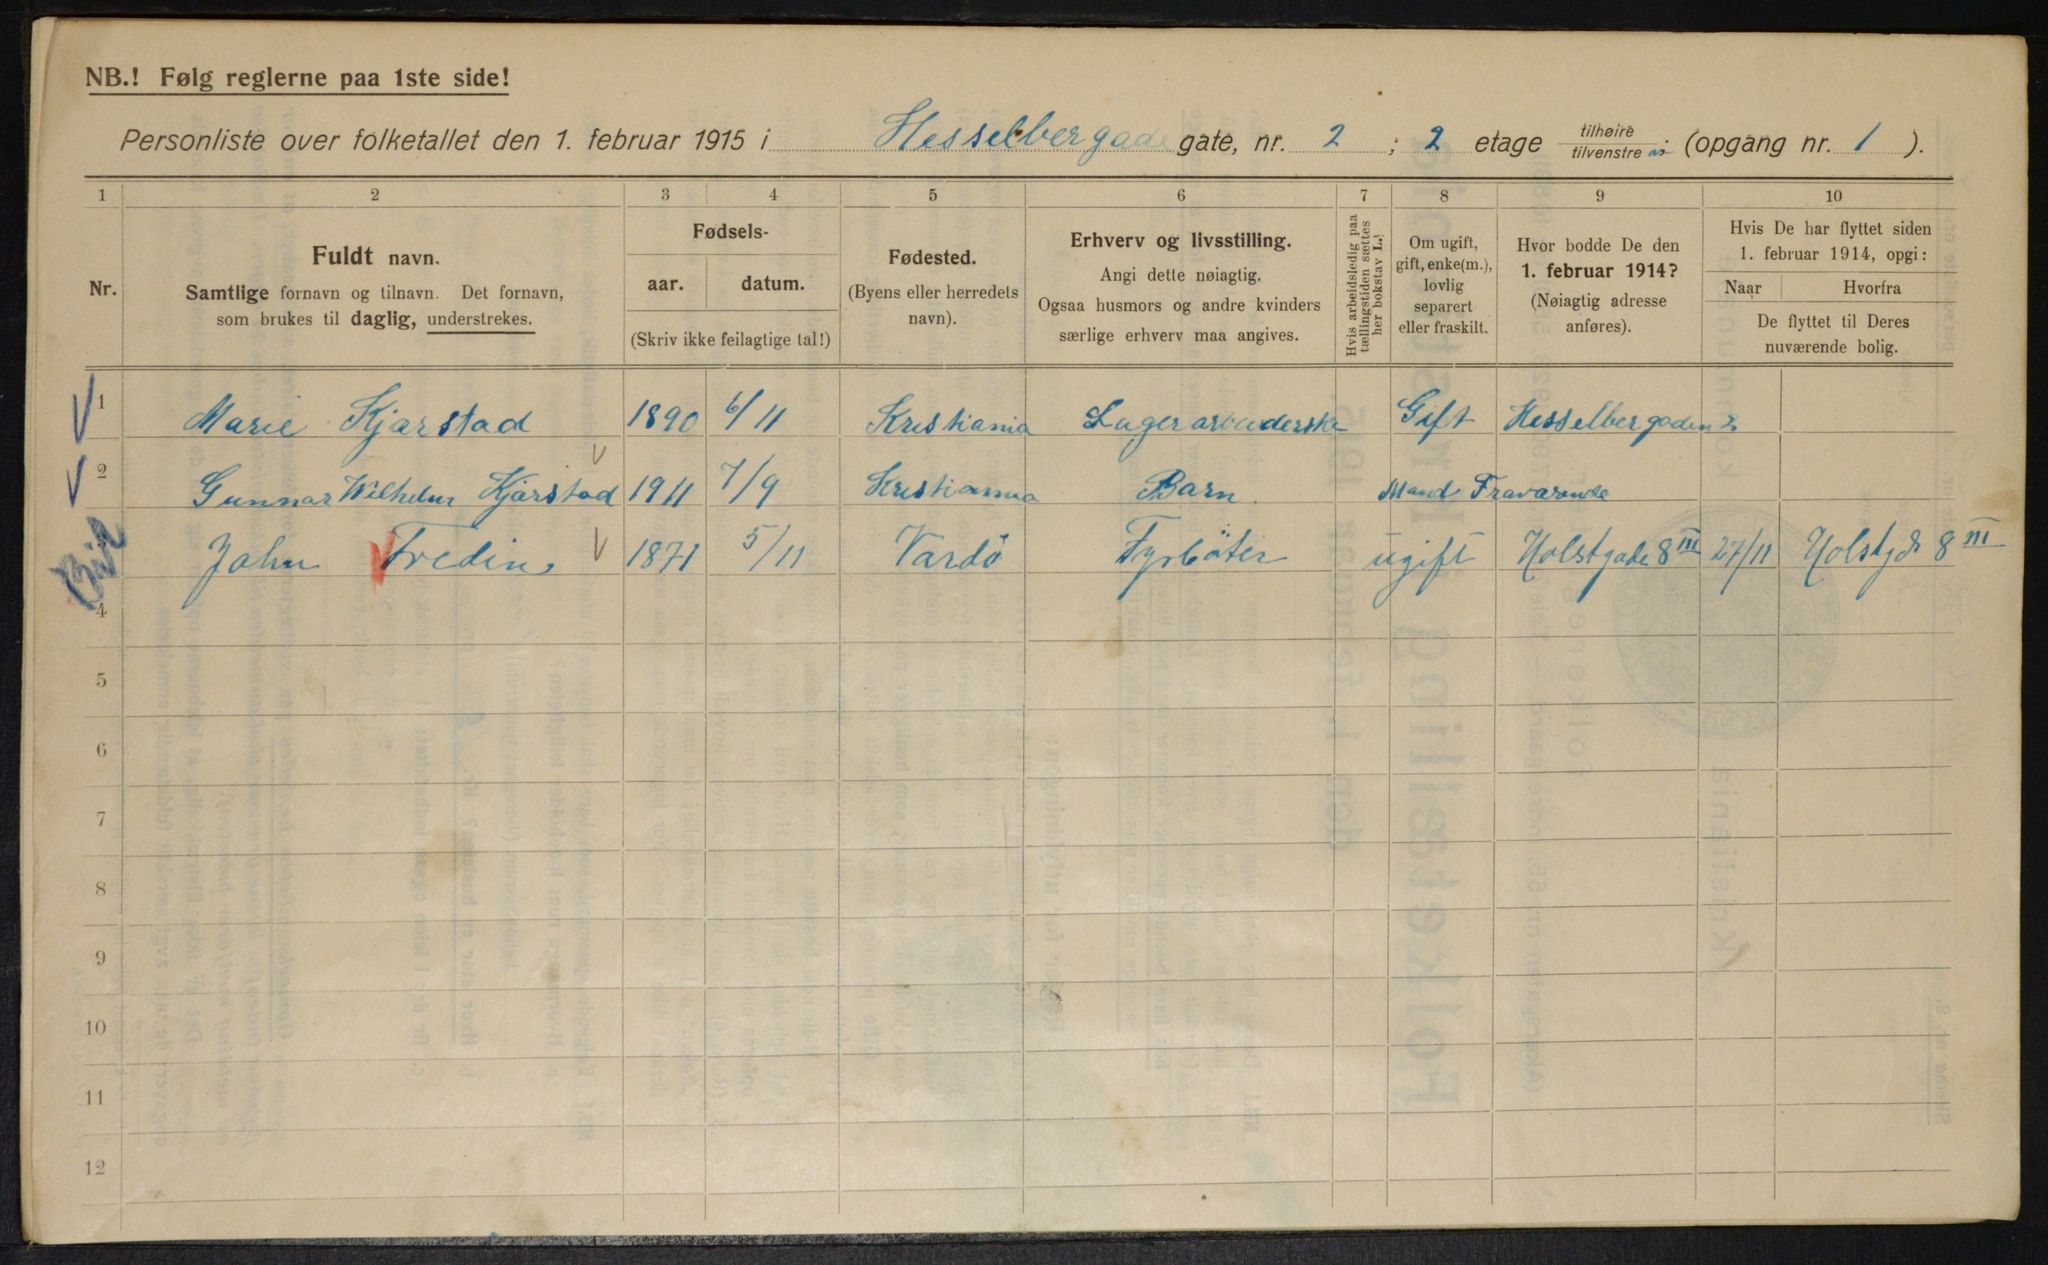 NB.! Følg reglerne paa 1ste side!
Personliste over folketallet den 1. februar 1915 i Hesselbergade gate, nr. 2 ; 2 etage tilhøire tilvenstre (opgang nr. 1 ).
1 2 3 4 5 6 7 8 9 10
Nr.
Fuldt navn.
Samtlige fornavn og tilnavn. Det fornavn,
som brukes til daglig, understrekes.
Fødsels-
aar. datum.
(Skriv ikke feilagtige tal!)
Fødested.
(Byens eller herredets
navn).
Erhverv og livsstilling.
Angi dette nøiagtig.
Ogsaa husmors og andre kvinders
særlige erhverv maa angives.
Hvis arbeidsledig paa
tællingstiden sættes
her bokstav L.
Om ugift,
gift, enke(m.),
lovlig
separert
eller fraskilt.
Hvor bodde De den
1. februar 1914?
(Nøiagtig adresse
anføres).
Hvis De har flyttet siden
1. februar 1914, opgi:
Naar Hvorfra
De flyttet til Deres
nuværende bolig.
1 Marie Kjarstad 1890 6/11 Kristiania Lagerarbeiderske Gift Hesselbergaden 2
2 Gunnar Wilhelm Kjärstad 1911 7/9 Kristiania Barn Mand Fraværende
3 John Fredin 1871 5/11 Vardö Fyrböter ugift Holstgade 8 III 27/11 Holstgd 8 III
4
5
6
7
8
9
10
11
12